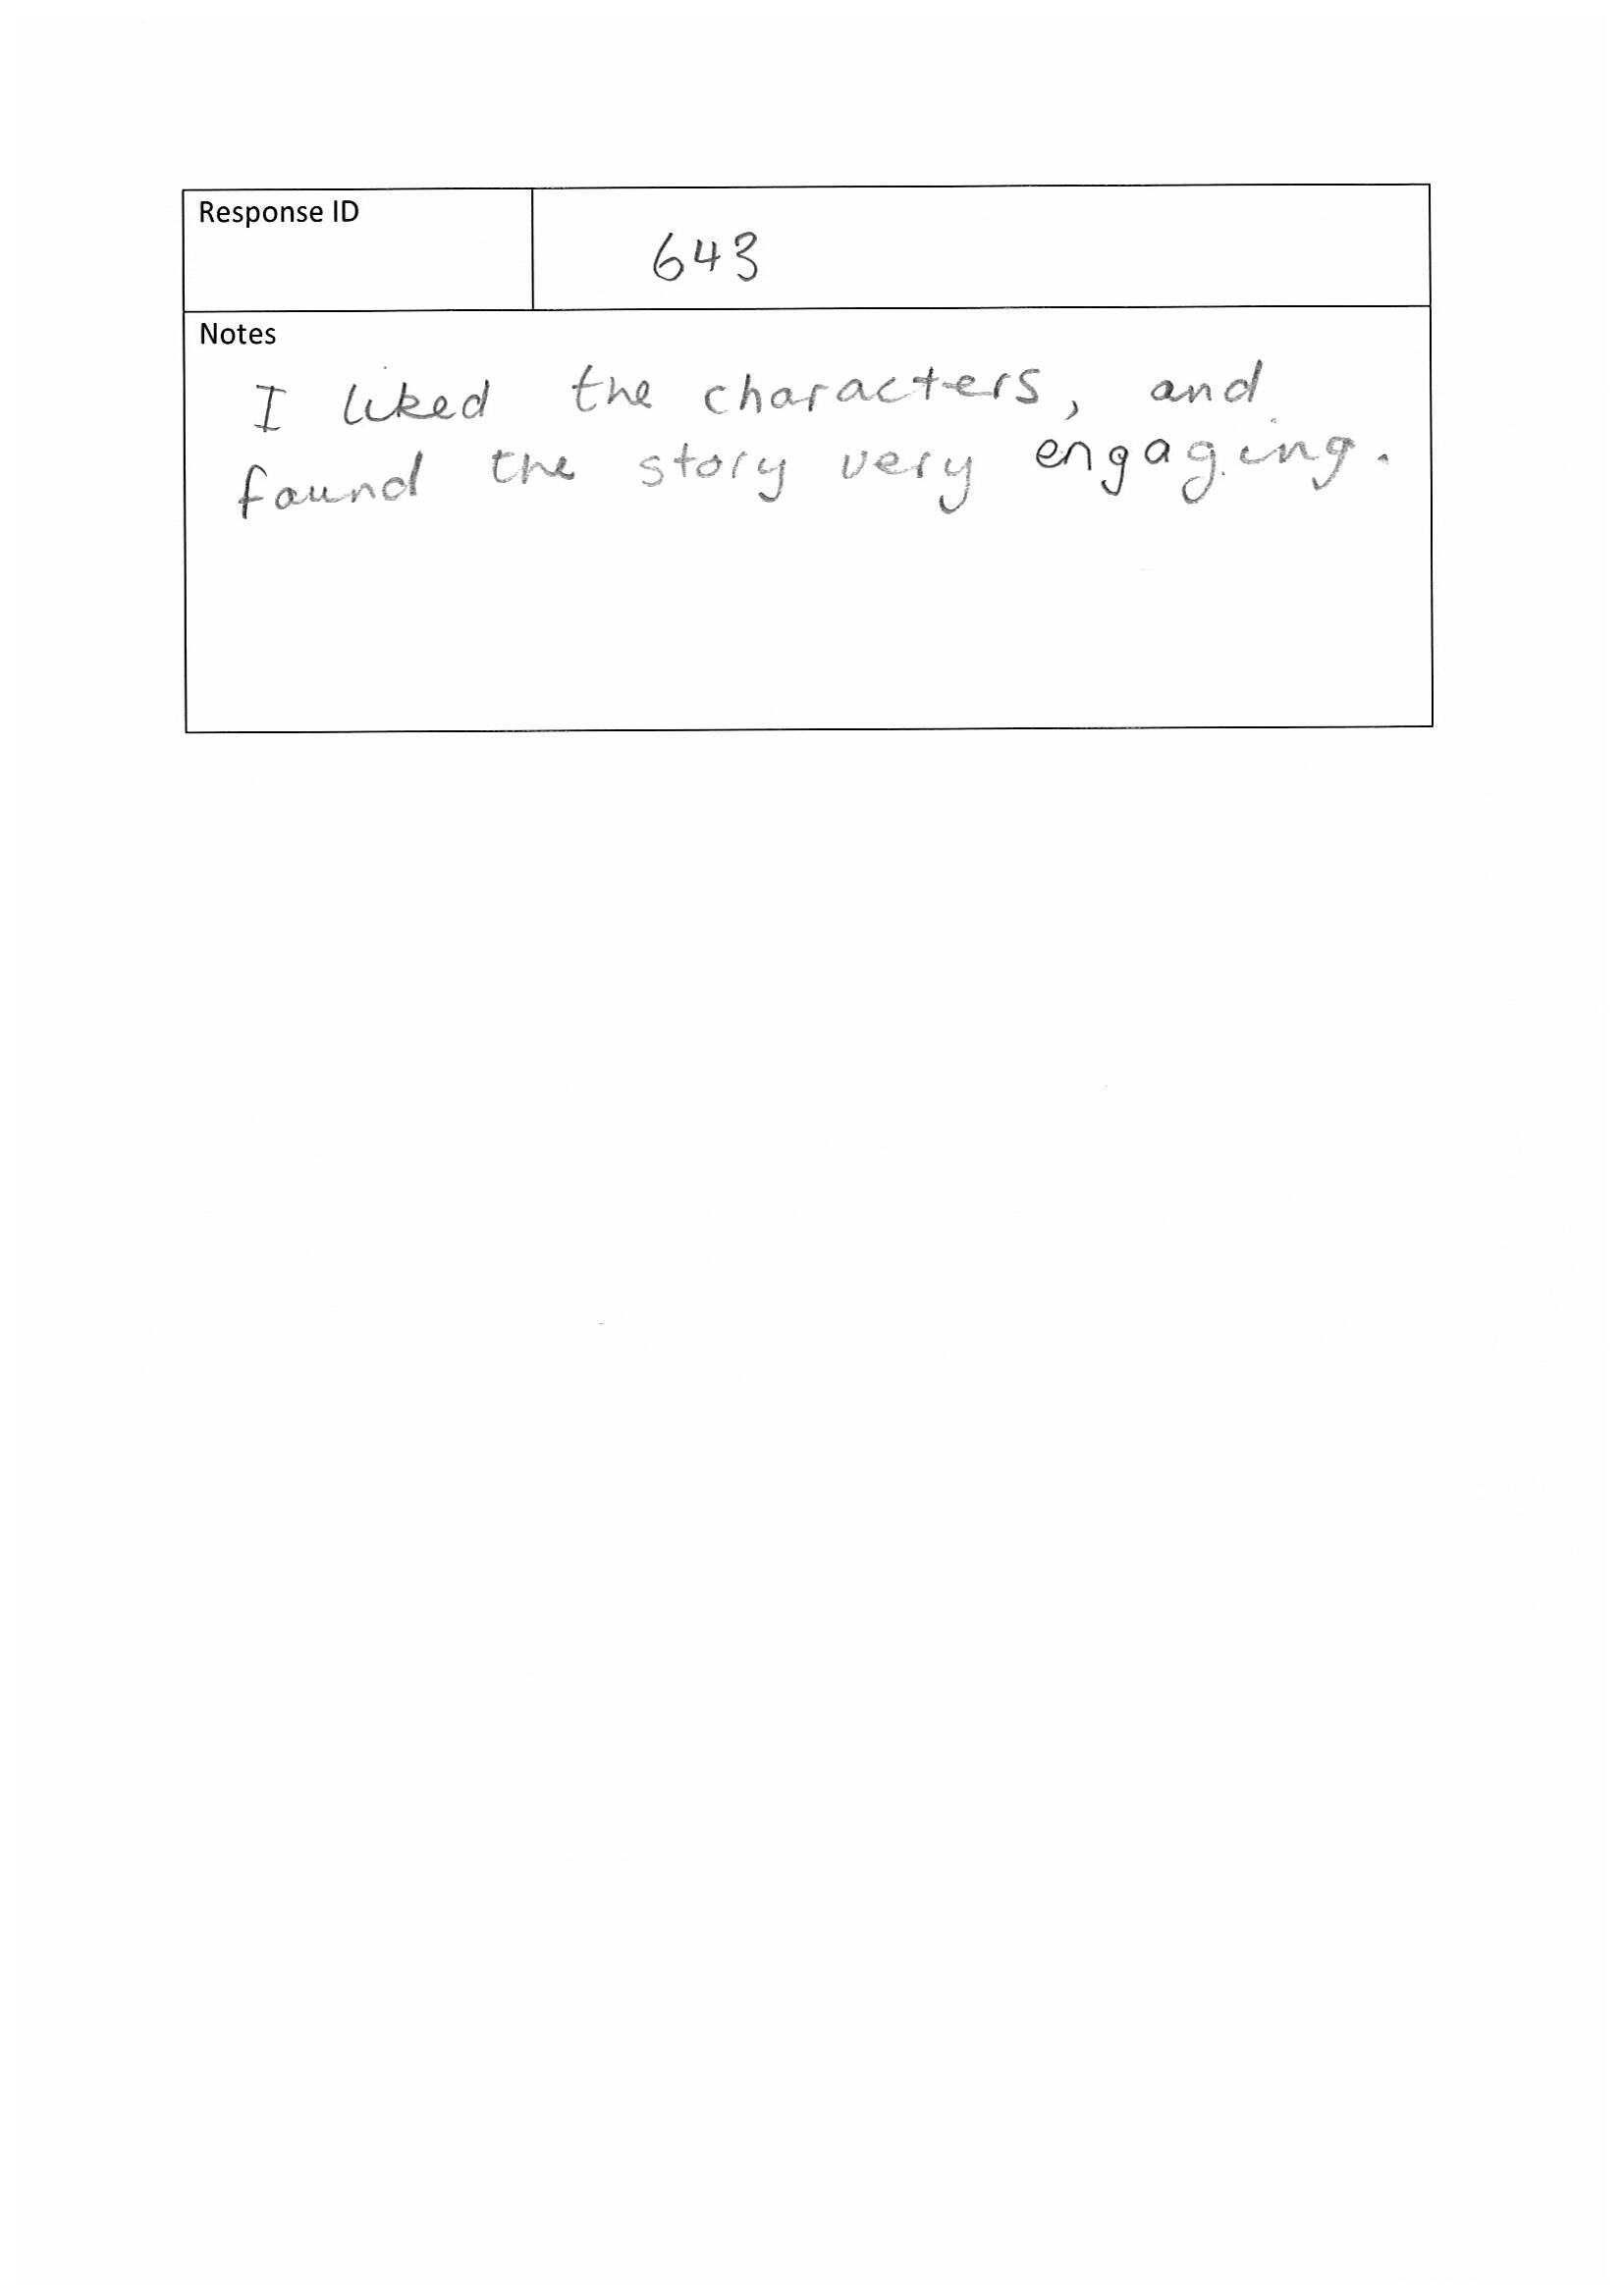 Response ID
643
Notes
I liked the characters, and
found the story very engaging.